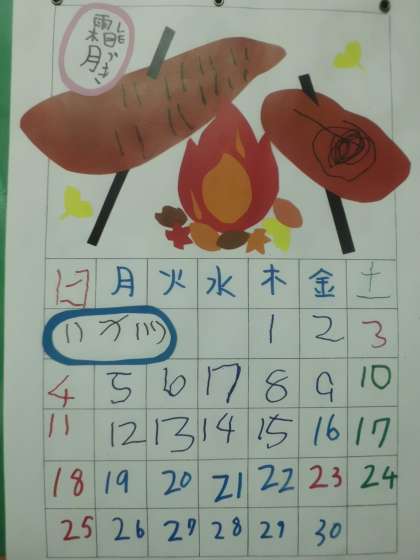 霜月
しもづき
日 月 火 水 木 金 土
11ガツ 1 2 3
4 5 6 7 8 9 10
11 12 13 14 15 16 17
18 19 20 21 22 23 24
25 26 27 28 29 30